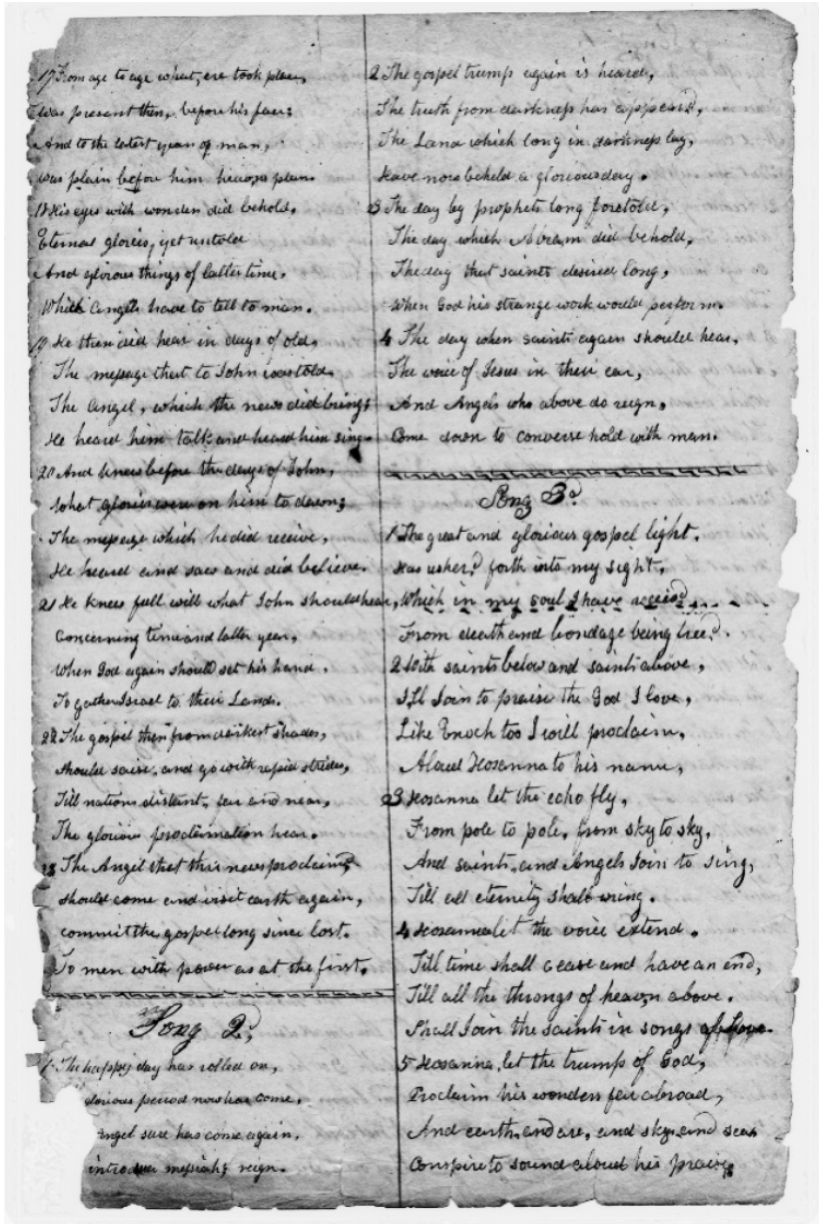 17 From age to age what, ere took place,
was present then, before his face:
And to the latest year of man,
was plain before him heavens plan.
18 His eyes with wonder did behold,
Eternal glories, yet untold
And glorious things of latter time.
Which Angels have to tell to man.
19 He then did hear in days of old.
The message that to John was told.
The Angel, which the news did bring;
He heard him talk and heard him sing.
20 And knew before the days of John,
What glories were on him to dawn;
The message which he did receive,
He heard and saw and did believe.
21 He knew full well what John should hear,
Concerning time and latter year,
When God again should set his hand.
To gather Israel to their Land.
22 The gospel then from darkest shades,
should raise, and go with rapid strides,
Till nations distant, far and near,
The glorious proclamation hear.
23 The Angel that this news proclaim,
should come and visit earth again,
commit the gospel long since lost.
To men with power as at the first.
Song 2d,
1 The happy day has rolled on,
glorious period now has come,
Angel sure has come again,
introduce messiah,s reign.
2 The gospel trump again is heard,
The truth from darkness has appear'd,
The Land which long in darkness lay,
Have now beheld a glorious day.
3 The day by prophets long foretold,
The day which Abram did behold,
The day that saints desired long,
When God his strange work would perform.
4 The day when saints again should hear,
The voice of Jesus in their ear,
And Angels who above do reign,
Come down to converse hold with man.
Song 3d
1 The great and glorious gospel light,
Has usher,d forth into my sight,
Which in my soul I have receiv,d
From death and bondage being free,d.
2 With saints below and saints above,
I,ll Join to praise the God I love,
Like Enoch too I will proclaim,
A loud Hosanna to his name,
3 Hosanna let the echo fly,
From pole to pole, from sky to sky,
And saints, and Angels Join to sing,
Till all eternity shall wring.
4 Hosanna let the voice extend.
Till time shall cease and have an end,
Till all the throngs of heaven above.
Shall Join the saints in songs of Love.
5 Hosanna, let the trump of God,
Proclaim his wonders far abroad,
And earth, and are, and sky, and seas
Conspire to sound aloud his praise,